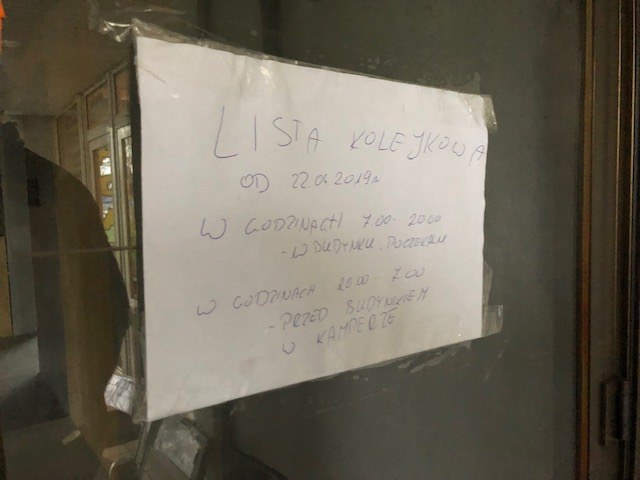 LISTA KOLEJKOWA
OD 2019r
W GODZINACH 7.00 - 20.00
- W BUDYNKU,
W GODZINACH 20.00 - 7.00
- PRZED BUDYNKIEM
W KAMPERZE